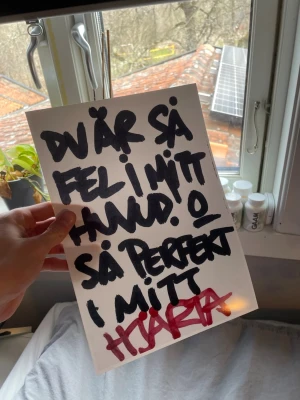 DU ÄR SÅ
FEL I MITT
HUVUD. O
SÅ PERFEKT
I MITT
HJÄRTA